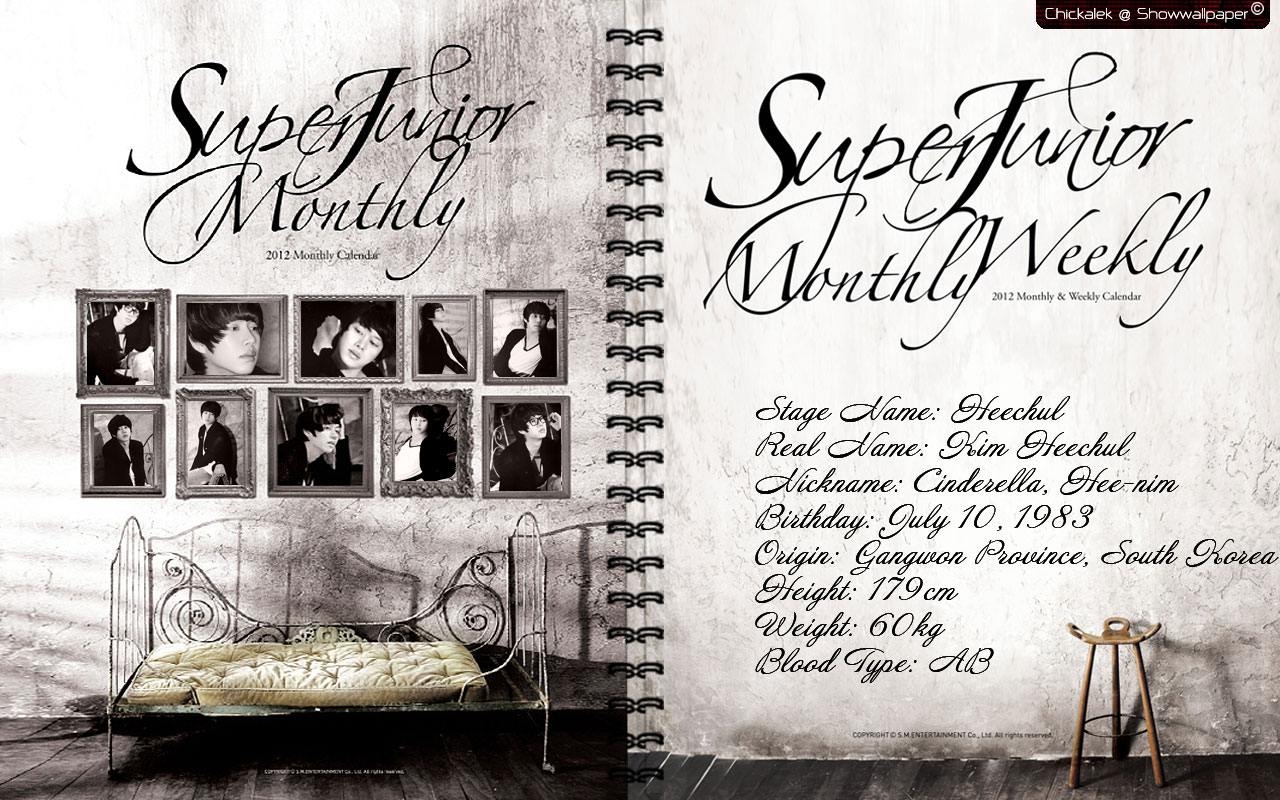 Chickalek @ Showwallpaper©
Super Junior
Monthly
2012 Monthly Calendar
COPYRIGHT © S.M.ENTERTAINMENT Co., Ltd. All rights reserved.
Super Junior
Monthly Weekly
2012 Monthly & Weekly Calendar
Stage Name: Heechul
Real Name: Kim Heechul
Nickname: Cinderella, Hee-nim
Birthday: July 10, 1983
Origin: Gangwon Province, South Korea
Height: 179cm
Weight: 60kg
Blood Type: AB
COPYRIGHT © S.M.ENTERTAINMENT Co., Ltd. All rights reserved.